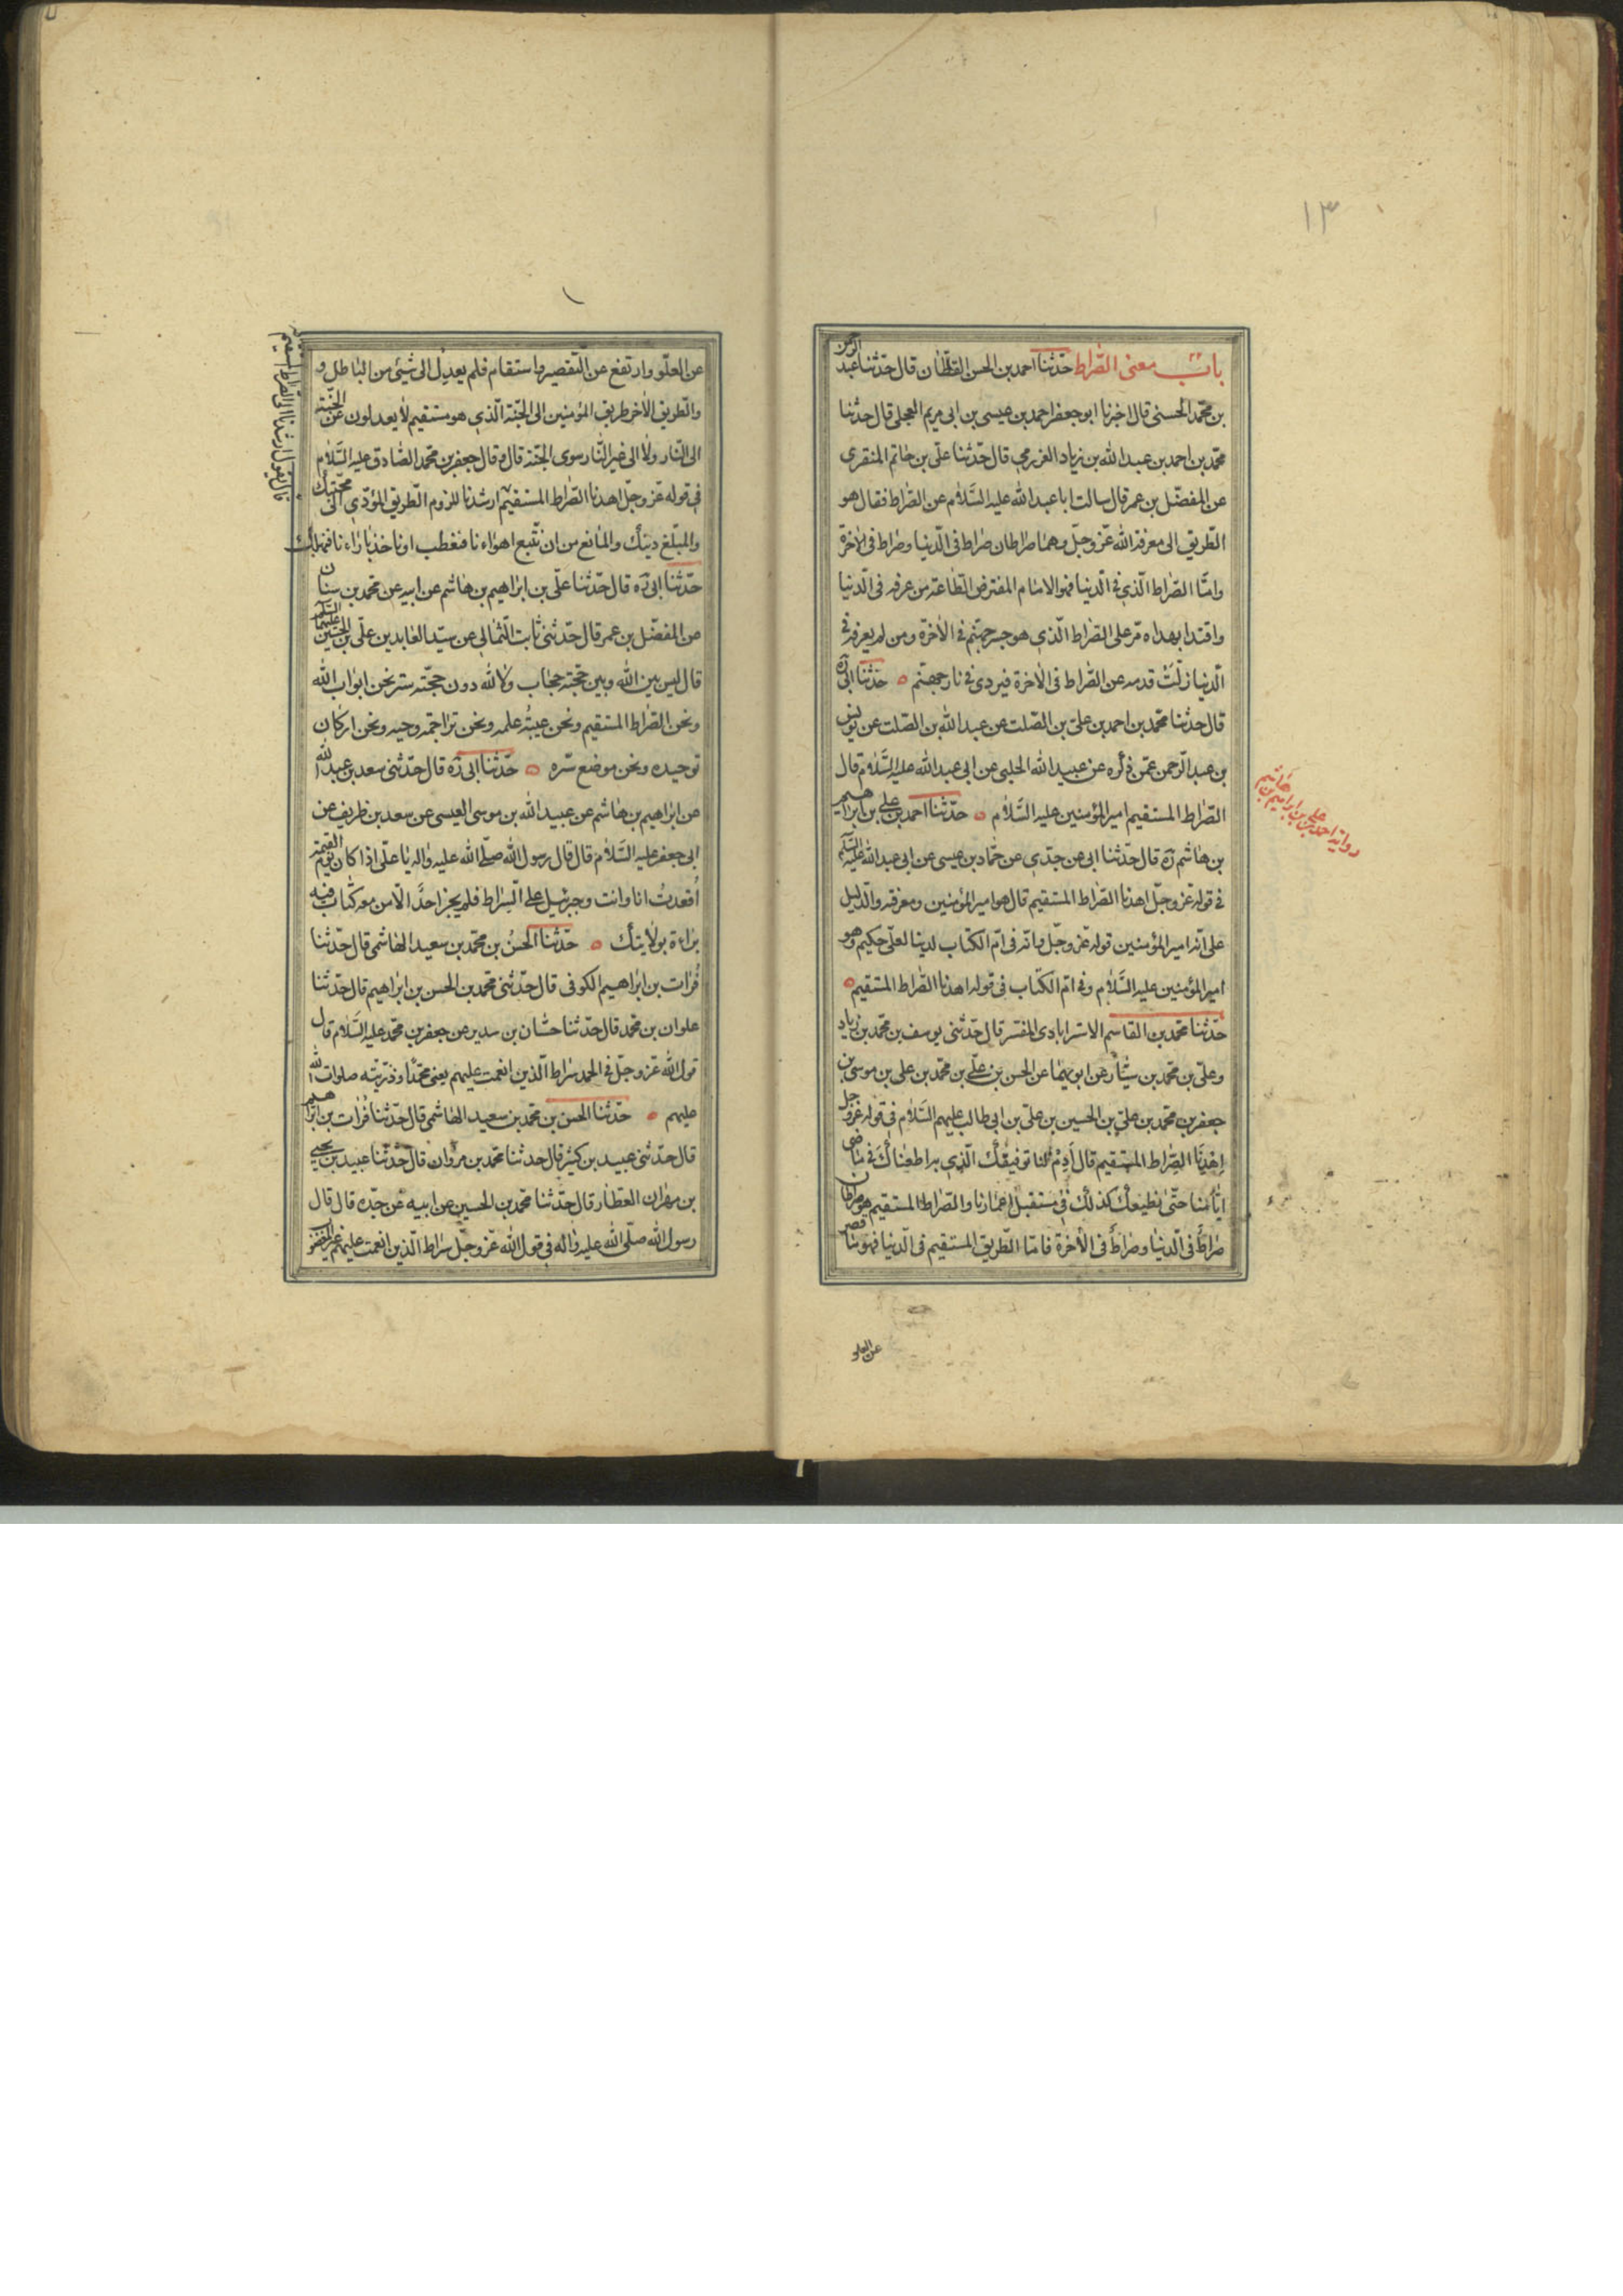 ١٣
باب معنى الصّراط حدّثنا احمد بن الحسن القطّان قال حدّثنا عبد الرحمن
بن محمّد الحسنى قال اخبرنا ابو جعفر احمد بن عيسى بن ابى مريم العجلى قال حدثنا
محمّد بن احمد بن عبد الله بن زياد العرزمى قال حدّثنا على بن حاتم المنقرى
عن المفضّل بن عمر قال سالت ابا عبد الله عليه السَّلام عن الصّراط فقال هو
الطّريق الى معرفة الله عزّ وجلّ وهما صراطان صراط فى الدّنيا وصراط فى الاخرة
وامّا الصّراط الّذي فى الدّنيا فهو الامام المفترض الطّاعة من عرفه فى الدّنيا
واقتدا بهداه مرّ على الصّراط الّذي هو جسر جهنّم فى الاخرة ومن لم يعرفه فى
الّدنيا زلّتْ قدمه عن الصّراط فى الاخرة فيردى فى نار جهنّم ٥ حدّثنا ابى ره
قال حدّثنا محمّد بن احمد بن على بن الصّلت عن عبد الله بن الصّلت عن يونس
بن عبد الرّحمن عمّن ذكره عن عبيد الله الحلبى عن ابى عبد الله عليه السَّلام قال
الصّراط المستقيم امير المؤمنين عليه السَّلام ٥ حدّثنا احمد بن على بن ابراهيم
بن هاشم ره قال حدّثنا ابى عن جدّي عن حمّاد بن عيسى عن ابى عبد الله عليه السلم
فى قوله عزّ وجلّ اهدنا الصّراط المستقيم قال هو امير المؤمنين ومعرفته والدّليل
على انّه امير المؤمنين قوله عزّ وجلّ وانّه فى امّ الكتاب لدينا لعلىّ حكيم وهو
امير المؤمنين عليه السَّلام وفى امّ الكتاب فى قوله اهدنا الصّراط المستقيم ٥
حدّثنا محمّد بن القاسم الاسترابادى المفسّر قال حدّثنى يوسف بن محمّد بن زياد
وعلىّ بن محمّد بن سيّار عن ابويهما عن الحسن بن علىّ بن محمّد بن على بن موسى بن
جعفر بن محمّد بن علىّ بن الحسين بن علىّ بن ابى طالب عليهم السَّلام فى قوله عزّ وجلّ
اِهْدِنَا الصِّراط المستقيم قال اَدِمْ لنا توفيقك الّذي به اطعناك فى ماضى
ايّامنا حتّى نطيعك كذلك فى مستقبل اعمارنا والصّراط المستقيم هو صراطان
صراطٌ فى الّدنيا وصراطٌ فى الاخرة فامّا الطّريق المستقيم فى الّدنيا فهو ما قصر
عن العلو
رواية احمد بن على بن ابراهيم بن هاشم
عن العلّو وارتفع عن التّقصير واستقام فلم يعدل الى شيئ من الباطل و
والطّريق الاخر طريق المؤمنين الى الجنّة الّذي هو مستقيم لا يعدلون عن الجنّة
الى النّار ولا الى غير النّار سوى الجنّة قال وقال جعفر بن محمّد الصّادق عليه السَّلام
فى قوله عزّ وجلّ اهدنا الصّراط المستقيم ارشدنا للزوم الطّريق المؤدّي الى محبّتك
والمبلّغ دينك والمانع من ان نتّبع اهواءنا فنعطب او ناخذ باراءنا فنهلك
قال يقول ارشدنا الى الصّراط المستقيم
حدّثنا ابى ره قال حدّثنا علّى بن ابراهيم بن هاشم عن ابيه عن محمّد بن سنان
عن المفضّل بن عمر قال حدّثنى ثابت الثّمالي عن سيّد العابدين علّى بن الحسين عليهما السلم
قال ليس بين الله وبين حجّته حجاب ولا لله دون حجّته ستر نحن ابواب الله
ونحن الصّراط المستقيم ونحن عيبُة علمه ونحن تراجمة وحيه ونحن اركان
توحيده ونحن موضع سّره ٥ حدّثنا ابى ره قال حدّثنى سعد بن عبد الله
عن ابراهيم بن هاشم عن عبيد الله بن موسى العبسى عن سعد بن طريف عن
ابى جعفر عليه السَّلام قال قال رسول الله صلّى الله عليه واله يا علّى اذا كان يوم القيمة
اُقعدتُ انا وانت وجبرئيل على السِّراط فلم يجز احدٌ الّا من معه كتاب فيه
براءة بولايتك ٥ حدّثنا الحسنُ بن محمّد بن سعيد الهاشمى قال حدّثنا
فُرات بن ابراهيم الكوفى قال حدّثنى محمّد بن الحسن بن ابراهيم قال حدّثنا
علوان بن محمّد قال حدّثنا حنّان بن سدير عن جعفر بن محمّد عليه السَّلام قال
قول الله عزّ وجلّ فى الحمد سراط الّذين انعمت عليهم يعنى محمّدًا وذرّيّته صلوات الله
عليهم ٥ حدّثنا الحسن بن محمّد بن سعيد الهاشمى قال حدّثنا فُرات بن ابراهيم
قال حدّثنى عبيد بن كثير قال حدثنا محمّد بن مروان قال حدّثنا عبيد بن يحيى
بن مهران العطّار قال حدّثنا محمّد بن الحسين عن ابيه عن جدّه قال قال
رسول الله صلّى الله عليه واله فى قول الله عزّ وجلّ سراط الّذين انعمت عليهم غير المغضو